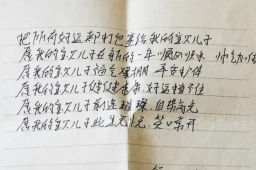 把所有好运都打包送给我的宝贝儿子
愿我的宝贝儿子在新的一年顺风顺水
愿我的宝贝儿子福气满满 平安
愿我的宝贝儿子健健康康 好运挡不住
愿我的宝贝儿子前途璀璨 自带高光
愿我的宝贝儿子此生无忧 笑口常开